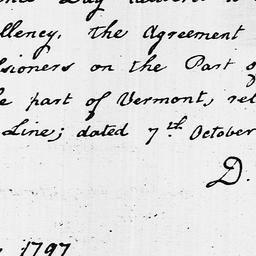 Day
llency. the Agreement
sioners on the Part
part of Vermont, rel
Line; dated 7th October
D.
1797